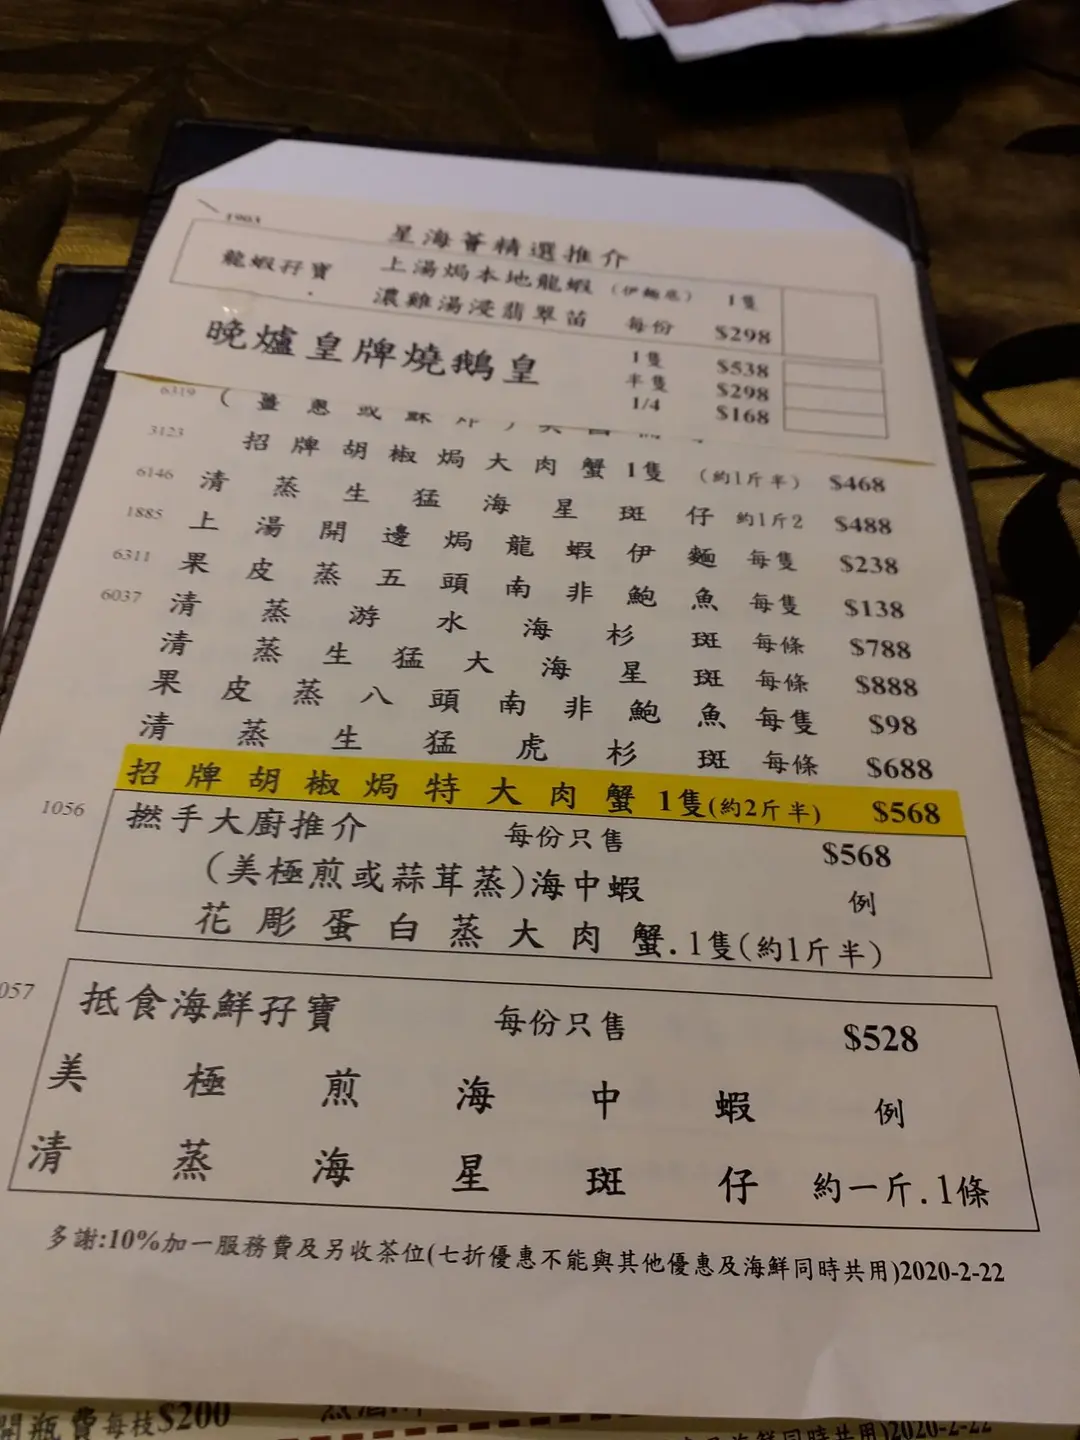 1903
星海薈精選推介
龍蝦孖寶 上湯焗本地龍蝦 (伊麵底) 1隻
濃雞湯浸翡翠苗 每份 $298
晚爐皇牌燒鵝皇 1隻 $538
半隻 $298
1/4 $168
6319 (薑蔥或酥炸)
3123 招牌胡椒焗大肉蟹1隻 (約1斤半) $468
6146 清蒸生猛海星斑仔 約1斤2 $488
1885 上湯開邊焗龍蝦伊麵 每隻 $238
6311 果皮蒸五頭南非鮑魚 每隻 $138
6037 清蒸游水海杉斑 每條 $788
清蒸生猛大海星斑 每條 $888
果皮蒸八頭南非鮑魚 每隻 $98
清蒸生猛虎杉斑 每條 $688
招牌胡椒焗特大肉蟹 1隻(約2斤半) $568
1056 撚手大廚推介 每份只售 $568
(美極煎或蒜茸蒸)海中蝦 例
花彫蛋白蒸大肉蟹.1隻(約1斤半)
057 抵食海鮮孖寶 每份只售 $528
美極煎海中蝦 例
清蒸海星斑仔 約一斤.1條
多謝:10%加一服務費及另收茶位(七折優惠不能與其他優惠及海鮮同時共用)2020-2-22
開瓶費每枝$200
海鮮同時共用)2020-2-22